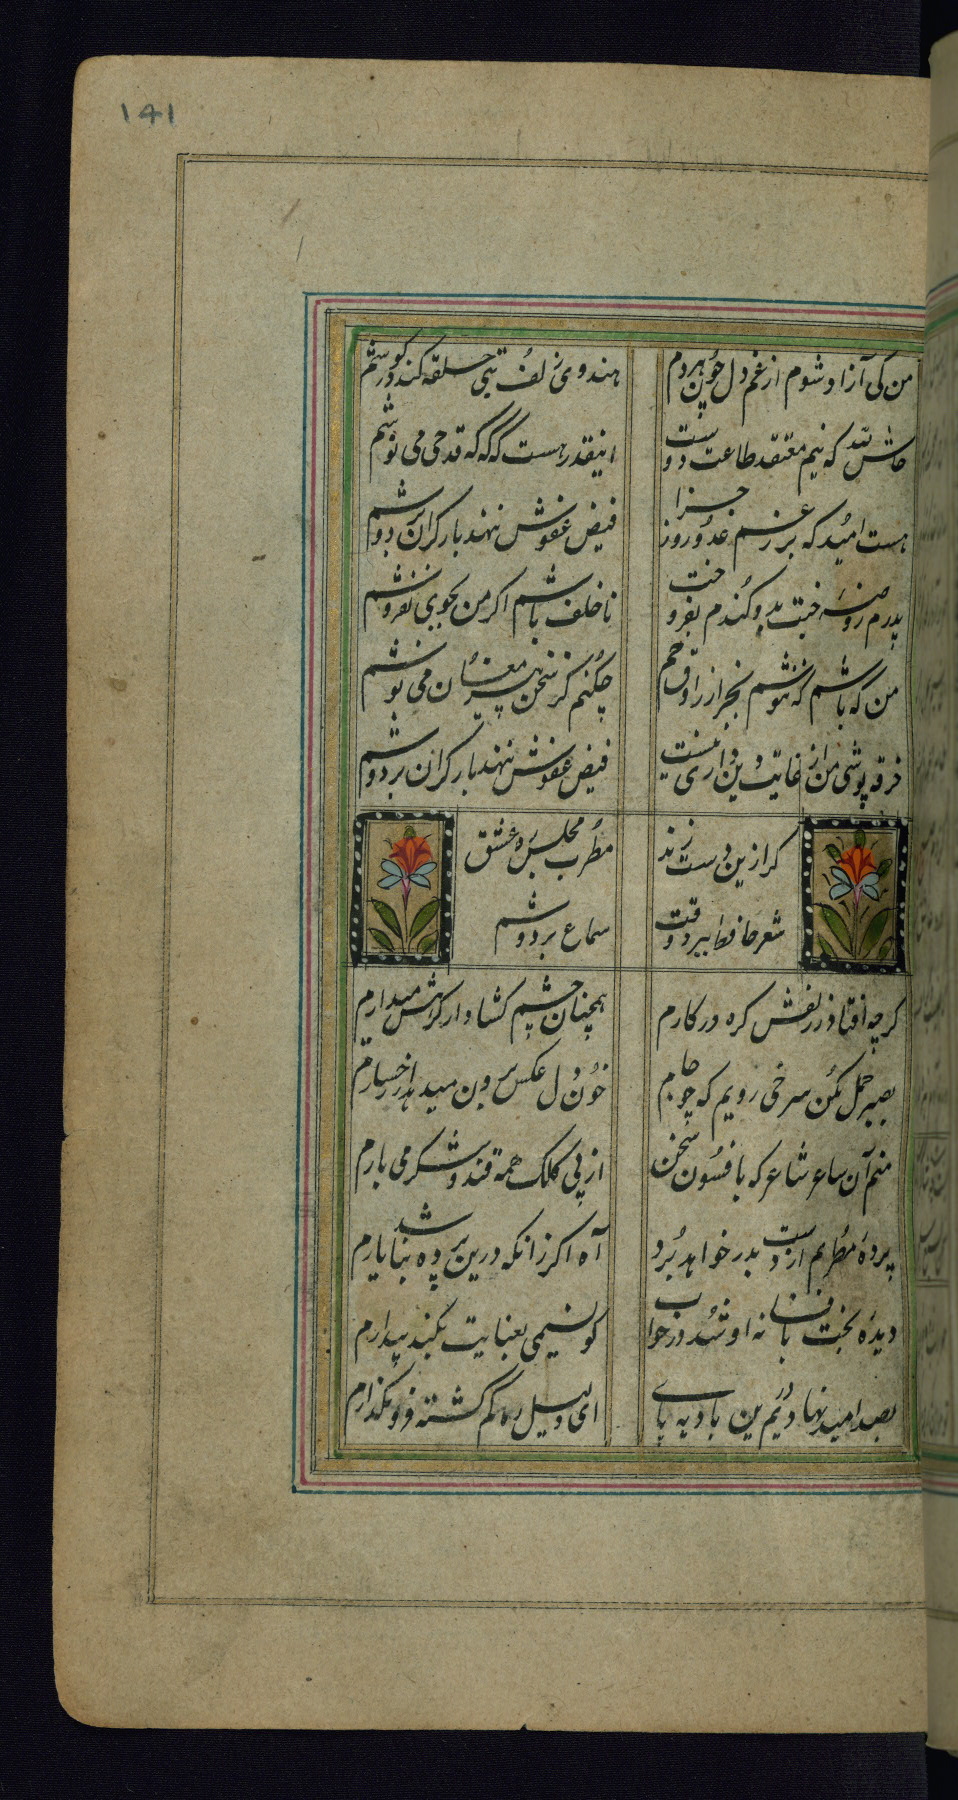 ۱۴۱
من کی آزاد شوم از غم دل چون هر دم
هندوی زلف بتی حلقه کند در گوشم
حاش لله که نیم معتقد طاعت دوست
اینقدر هست که گه گه قدحی می نوشم
هست امید که بر رغم عدو روز جزا
فیض عفوش ننهد بار گران بر دوشم
پدرم روضه جنت بدو گندم بفروخت
ناخلف باشم اگر من بجوی نفروشم
من که باشم که ننوشم بجز از راوق خم
چکنم گر سخن پیر مغان می نوشم
خرقه پوشی من از غایت دین داری نیست
فیض عفوش ننهد بار گران بر دوشم
گر ازین دست زند
مطرب مجلس ره عشق
شعر حافظ ببرد وقت
سماع بر دوشم
گرچه افتاد ز زلفش گره در کارم
همچنان چشم گشاد از کرمش میدارم
بصبر حمل مکن سرخی رویم که چو جام
خون دل عکس برون میدهد از رخسارم
منم آن ساعر شاعر که بافسون سخن
از پی کلک همه قند و شکر می بارم
پرده مطربم از دست بدر خواهد برد
آه اگر زانکه درین پرده نباشد یارم
دیده بخت بافسانه او شد در خواب
کو نسیمی بعنایت بکند بیدارم
بصد امید نهادیم درین بادیه پای
ای دلیل ره گم گشته فرو نگذارم